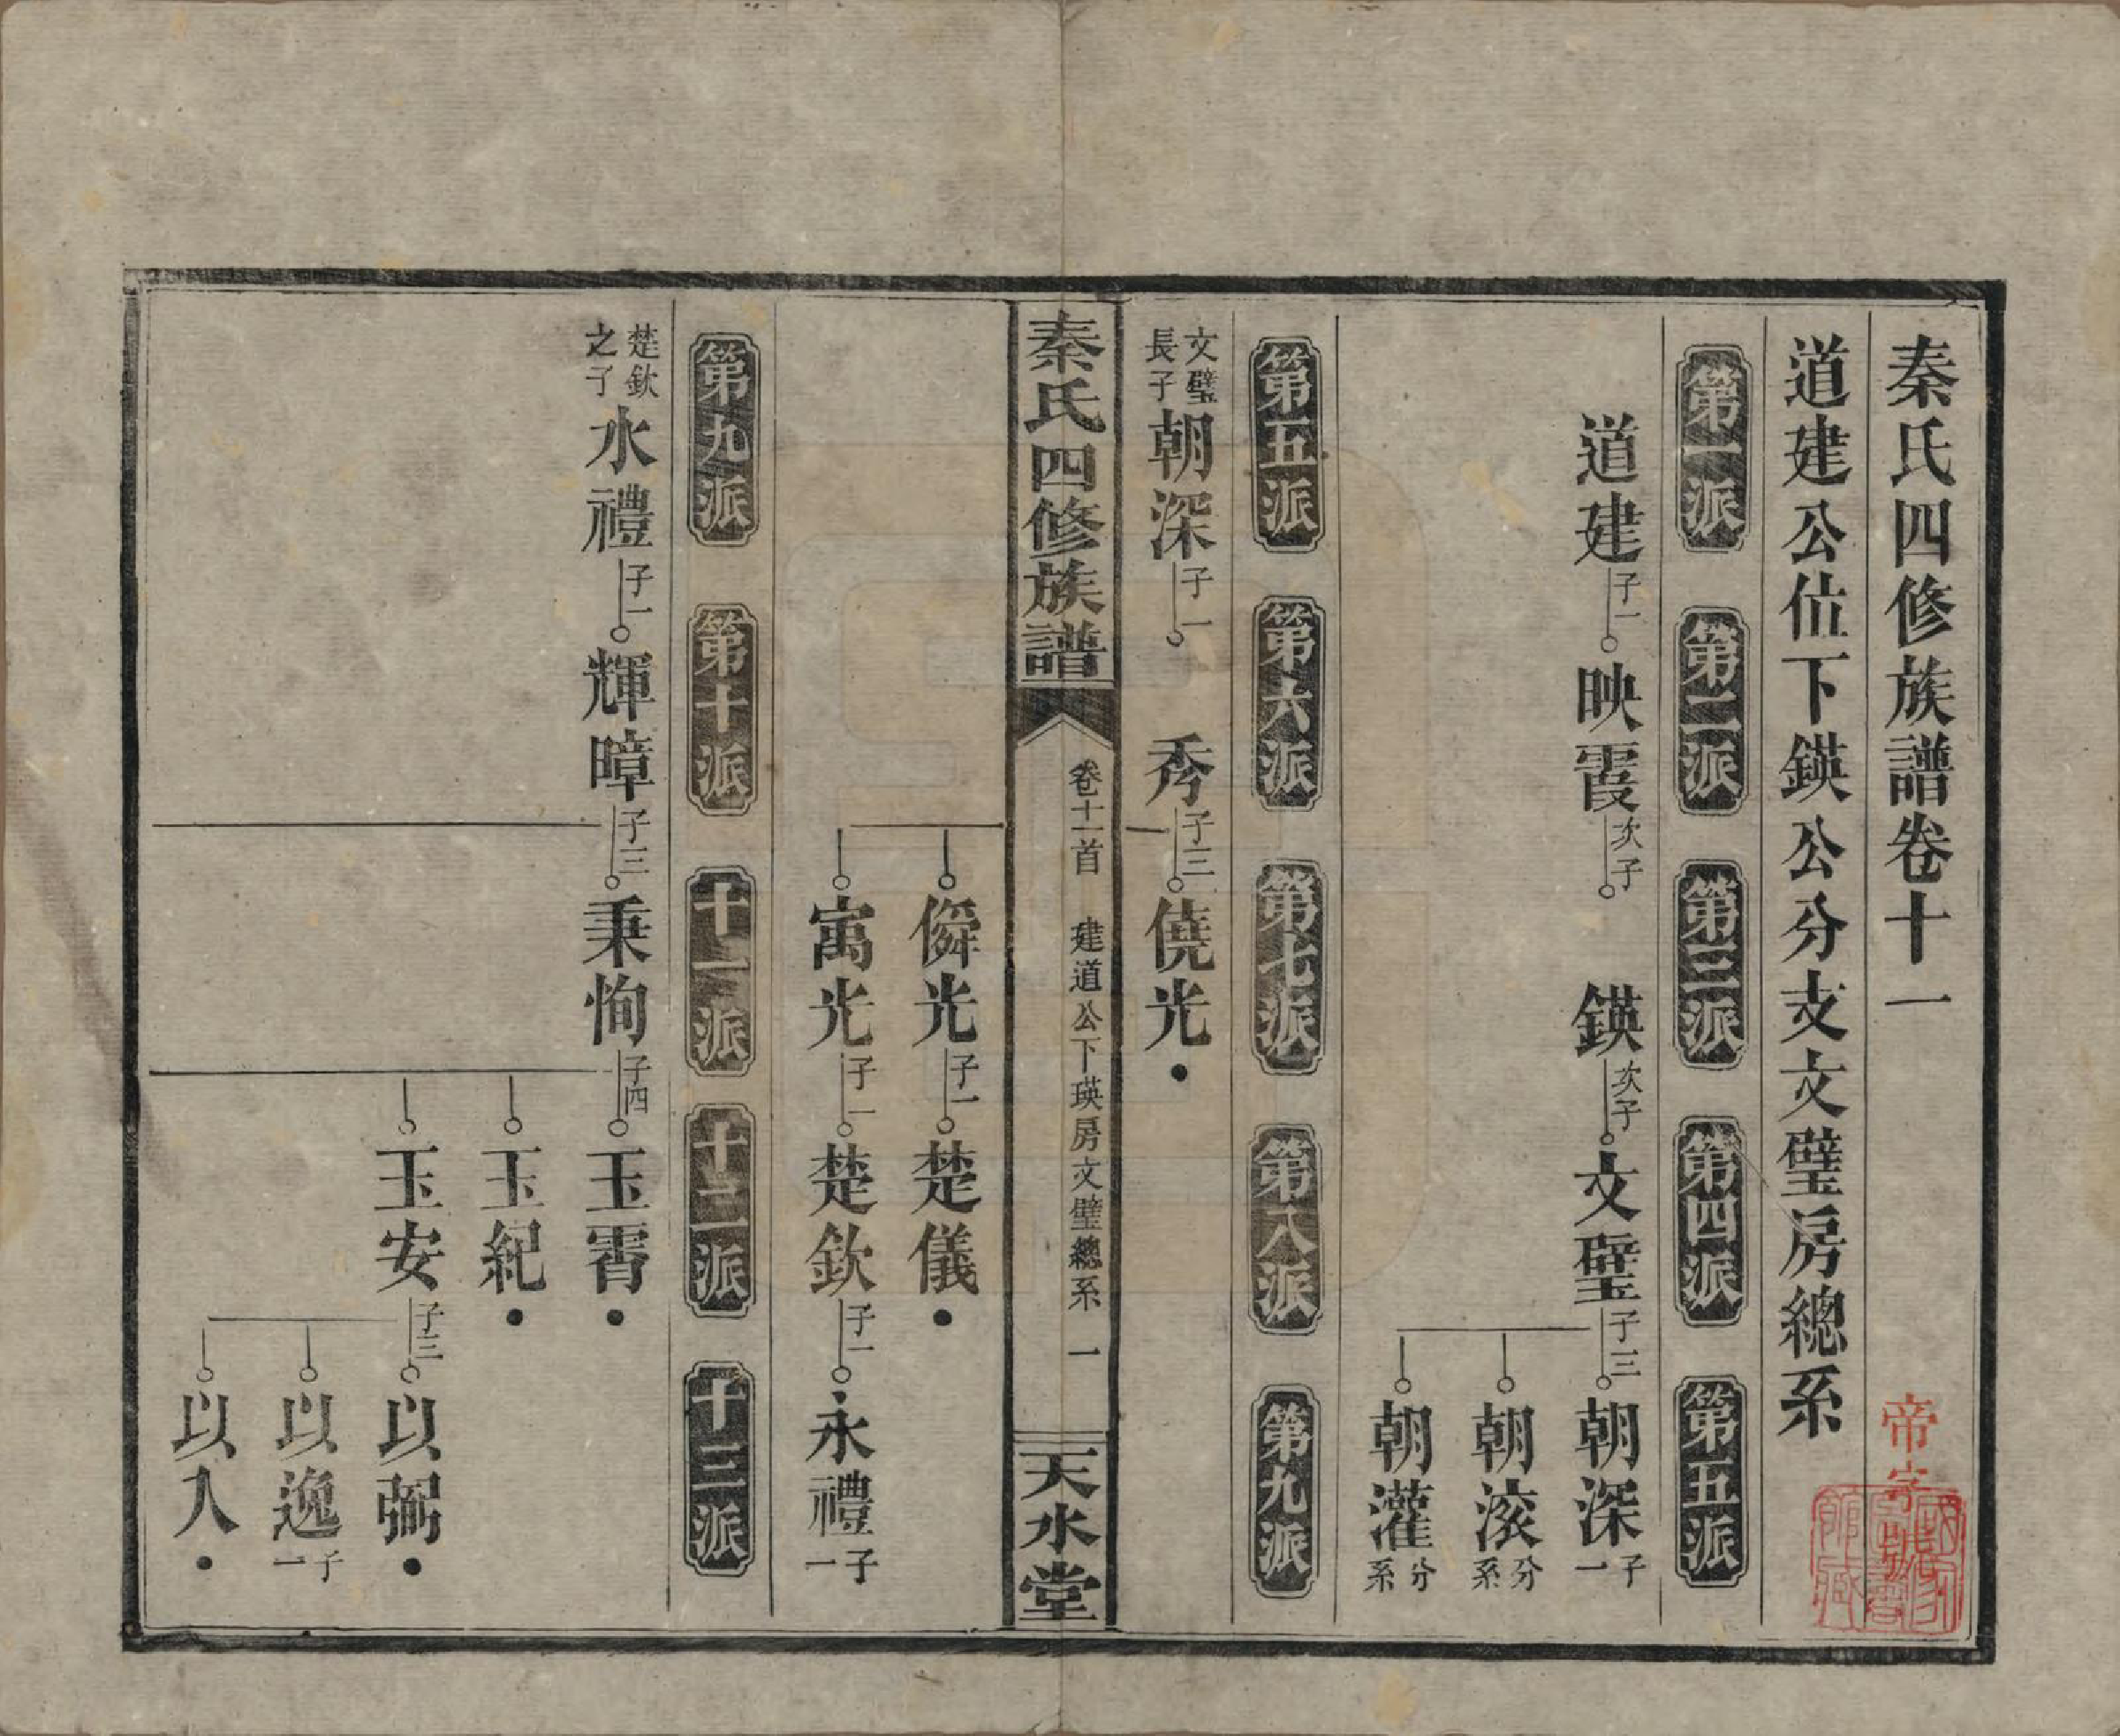 秦氏四修族譜卷十一
帝字號
道建公位下鍈公分支文璧房總系
第一派 第二派 第三派 第四派 第五派
道建 子一 映霞 次子 鍈 次子 文璧 子三 朝深 子一
朝滚 分系
朝灌 分系
第五派 第六派 第七派 第八派 第九派
文璧長子 朝深 子一 秀 子三 僥光
秦氏四修族譜 卷十一首 建道公下瑛房文璧總系 一 天水堂
僢光 子一 楚儀
寓光 子一 楚欽 子一 永禮 子一
第九派 第十派 十一派 十二派 十三派
楚欽之子 水禮 子一 輝暲 子三 秉恂 子四 玉霄
玉紀
玉安 子三 以弼
以逸 子一
以人